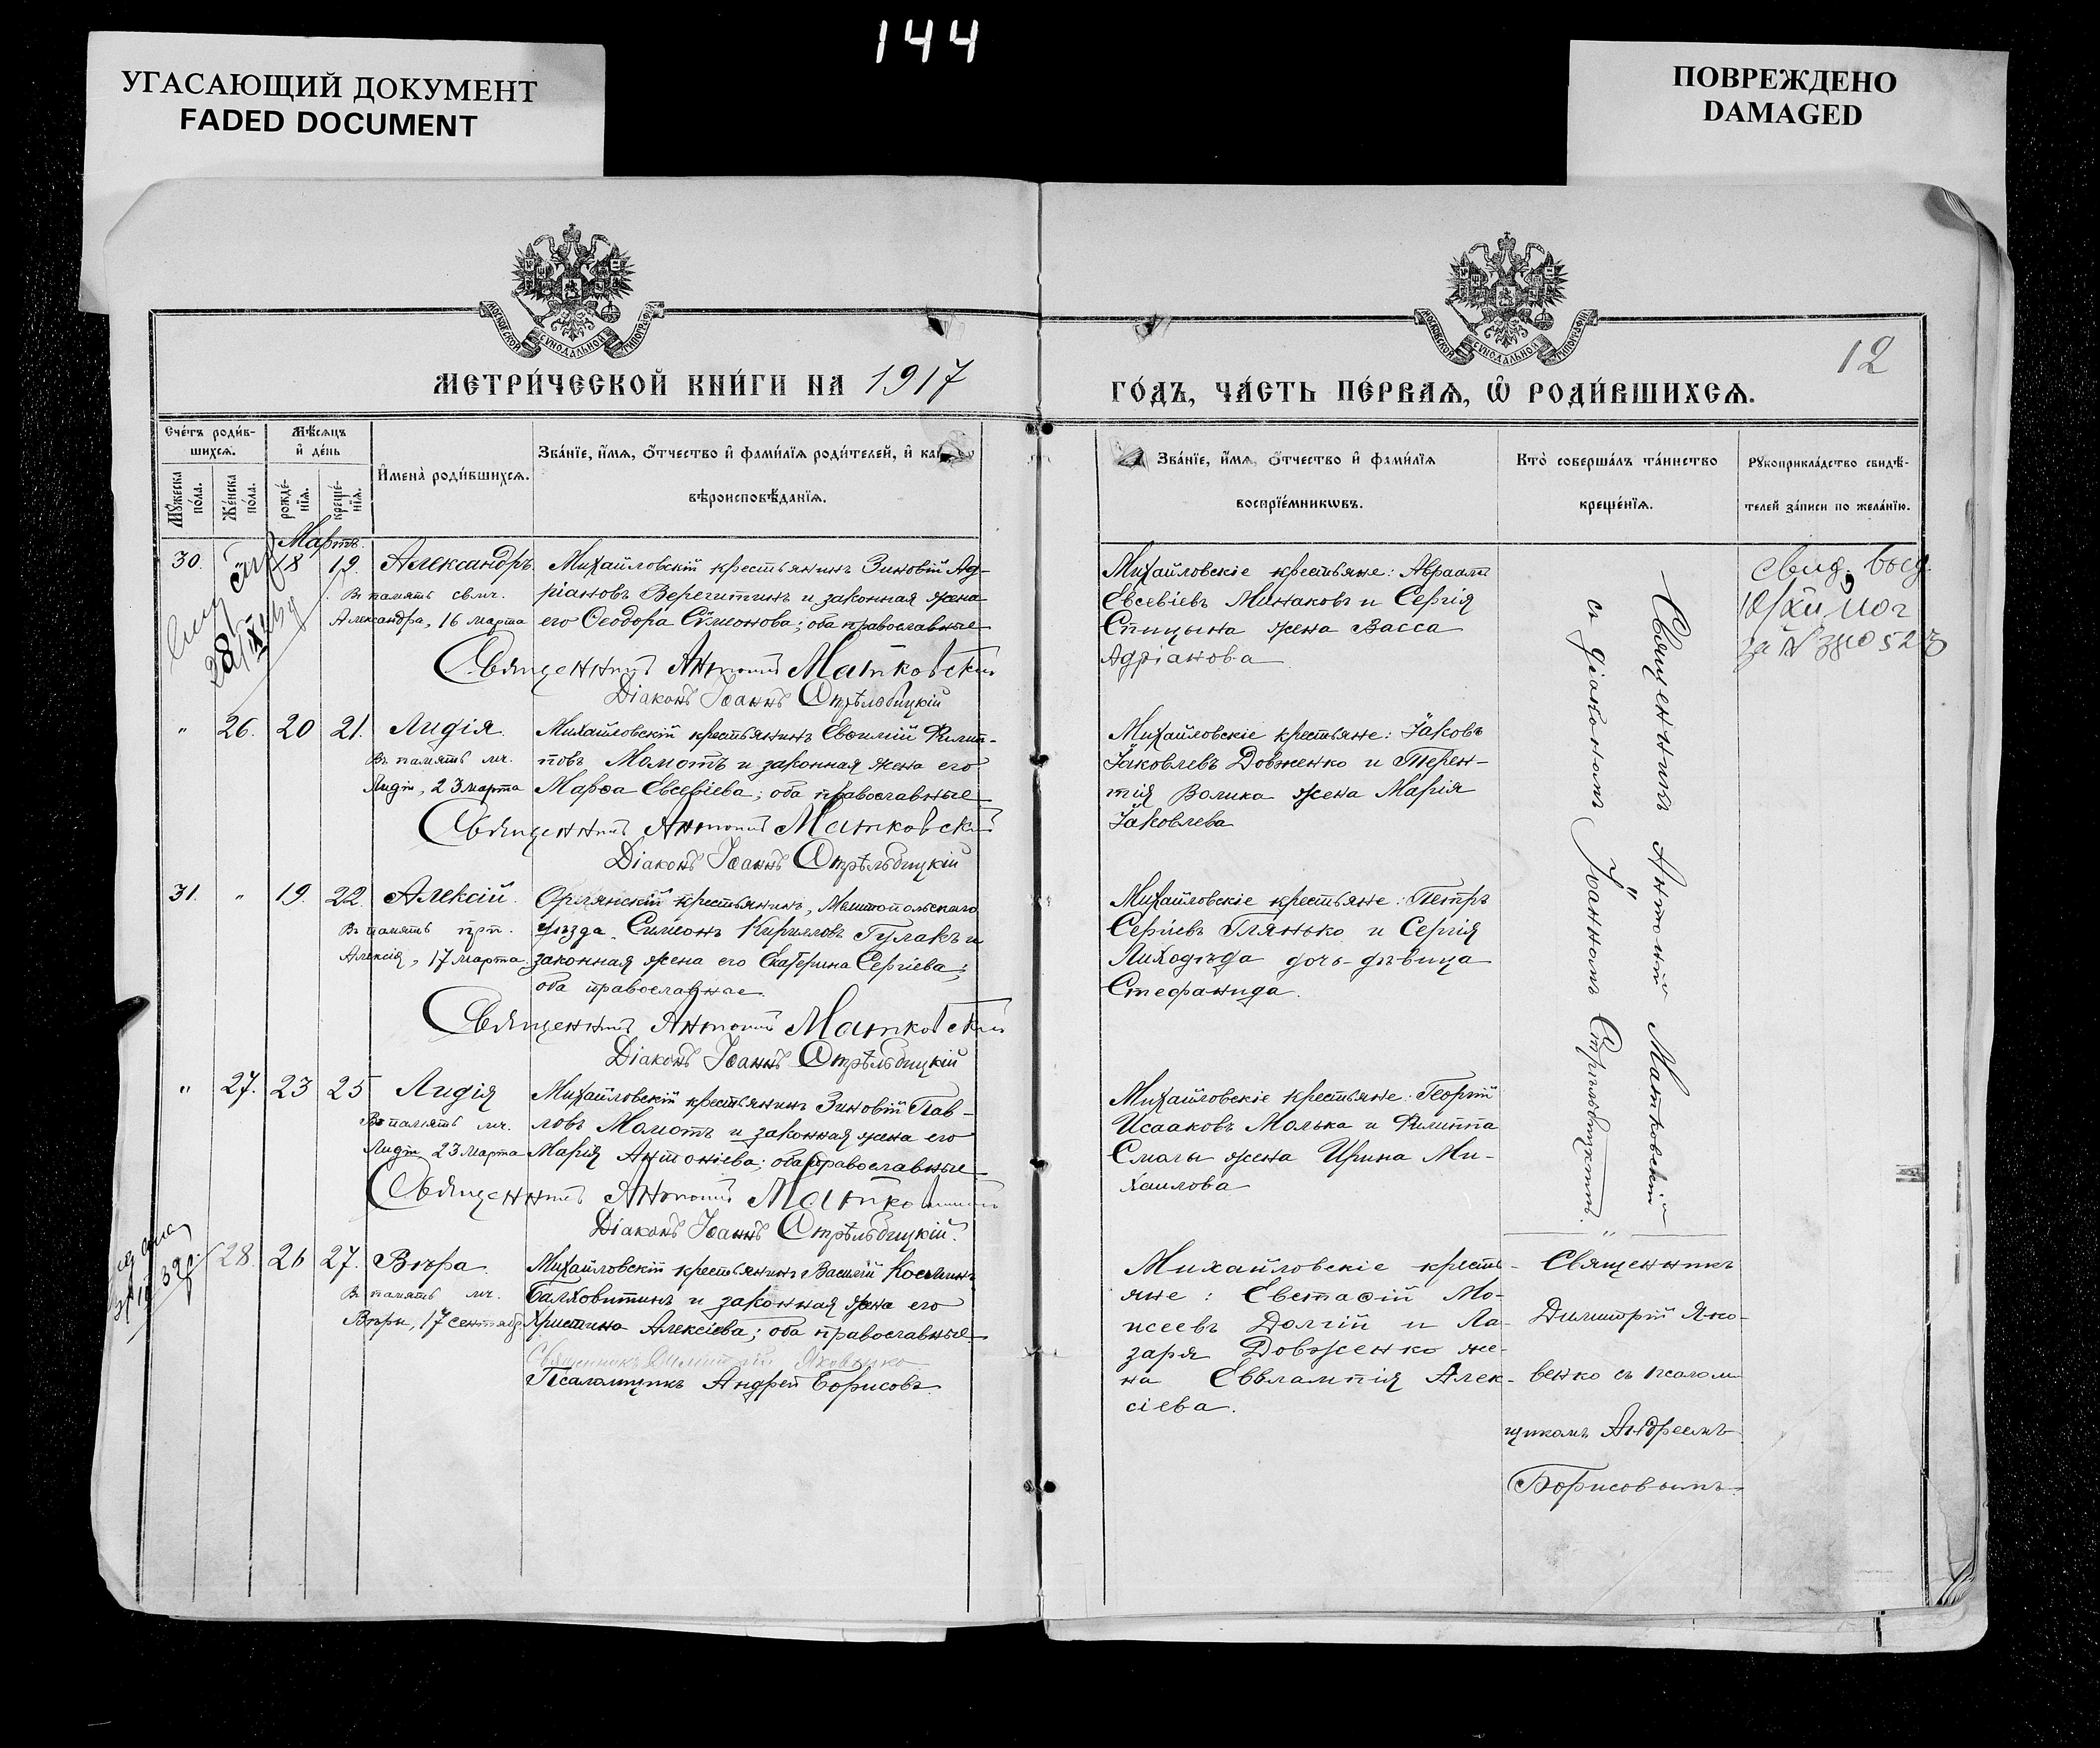 144
УГАСАЮЩИЙ ДОКУМЕНТ
FADED DOCUMENT
ПОВРЕЖДЕНО
DAMAGED
МОСКОВСКОЙ СѴНОДАЛЬНОЙ ТИПОГРАФІИ
МОСКОВСКОЙ СѴНОДАЛЬНОЙ ТИПОГРАФІИ
12
МЕТРИ́ЧЕСКОЙ КНИ́ГИ НА 1917
ГО́ДЪ, ЧА́СТЬ ПЕ́РВАѦ, Ѽ РОДИ́ВШИХСѦ.
Сче́тъ роди́в-
шихсѧ.
Мꙋ́жеска
по́ла.
Же́нска
по́ла.
Мѣ́сѧцъ
и҆ де́нь
рожде́-
нїѧ.
креще́-
нїѧ.
И҆мена̀ роди́вшихсѧ.
Зва́нїе, и҆́мѧ, ѻ҆́тчество и҆ фами́лїѧ роди́телей, и҆ как
вѣроисповѣ́данїѧ.
Зва́нїе, и҆́мѧ, ѻ҆́тчество и҆ фами́лїѧ
воспрїе́мникѡвъ.
Кто̀ соверша́лъ та́инство
креще́нїѧ.
Рꙋкоприкла́дство свидѣ́-
телей за́писи по жела́нїю.
Мартъ.
30. 18 19. Александръ.
Въ память свмч.
Александра, 16 марта
Михайловскій крестьянинъ Зиновій Ад-
ріановъ Веретитинъ и законная жена
его Ѳеодора Сѵмеонова; оба православные
Священникъ Антоній Матковскій
Діаконъ Іоаннъ Стрѣльбицкій
Михайловскіе крестьяне: Авраамъ
Евсевіевъ Минаковъ и Сергія
Спицына жена Васса
Адріанова
Священникъ Антоній Матковскій
съ діакономъ Іоанномъ Стрѣльбицкимъ.
свид.
" 26. 20 21. Лидія.
Въ память мч.
Лидіи, 23 марта
Михайловскій крестьянинъ Евѳимій Филип-
повъ Момотъ и законная жена его
Марѳа Евсевіева; оба православные
Священникъ Антоній Матковскій
Діаконъ Іоаннъ Стрѣльбицкій
Михайловскіе крестьяне: Іаковъ
Іаковлевъ Довженко и Терен-
тія Волика жена Марія
Іаковлева
31. " 19. 22. Алексій.
Въ память прп.
Алексія, 17 марта.
крестьянинъ, Мелитопольскаго
уѣзда, Симеонъ Кирилловъ Гулакъ и
законная жена его Екатерина Сергіева;
оба православные.
Священникъ Антоній Матковскій
Діаконъ Іоаннъ Стрѣльбицкій
Михайловскіе крестьяне: Петръ
Сергіевъ Глянько и Сергія
Лиходѣда дочь-дѣвица
Стефанида.
" 27. 23 25 Лидія
Въ память мч.
Лидіи, 23 марта
Михайловскій крестьянинъ Зиновій Пав-
ловъ Момотъ и законная жена его
Марія Антоніева; оба православные
Священникъ Антоній Матковскій
Діаконъ Іоаннъ Стрѣльбицкій.
Михайловскіе крестьяне: Георгій
Исааковъ Молька и Филиппа
Смалы жена Ирина Ми-
хаилова
28. 26 27. Вѣра.
Въ память мч.
Вѣры, 17 сентябр.
Михайловскій крестьянинъ Василій Косминъ
Балховитинъ и законная жена его
Христина Алексіева; оба православные.
Священникъ Димитрій Яковенко
Псаломщикъ Андрей Борисовъ.
Михайловскіе кресть-
яне: Евстаѳій Мо-
исеевъ Долгій и Ла-
заря Довженко же-
на Евлампія Алек-
сіева.
Священникъ
Димитрій Яко-
венко съ псалом-
щикомъ Андреемъ
Борисовымъ.